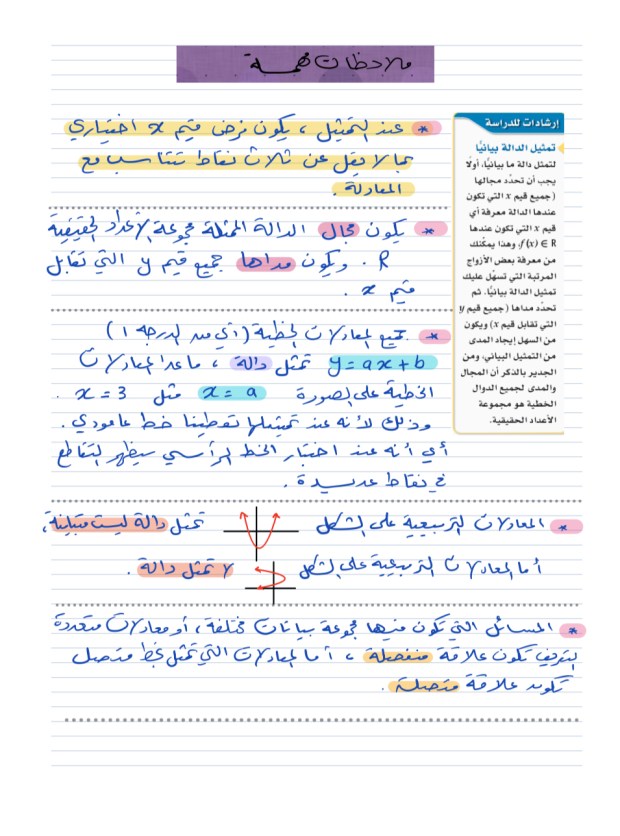 ملاحظات مهمـــة
* عند التمثيل ، يكون فرض قيم x اختياري
بما لا يقل عن ثلاث نقاط تتناسب مع
المعادلة .
* يكون مجال الدالة الممثلة مجموعة الأعداد الحقيقية
R . ويكون مداها جميع قيم y التي تقابل
قيم x .
* جميع المعادلات الخطية (أي من الدرجة 1)
y = ax + b تمثل دالة ، ما عدا المعادلات
الخطية على الصورة x = a مثل x = 3 .
وذلك لأنه عند تمثيلها تعطينا خط عامودي .
أي أنه عند اختبار الخط الرأسي سيظهر التقاطع
في نقاط عديدة .
* المعادلات التربيعية على الشكل تمثل دالة ليست متباينة ،
أما المعادلات التربيعية على الشكل لا تمثل دالة .
* المسائل التي تكون فيها مجموعة بيانات مختلفة ، أو معادلات متعددة
التعريف تكون علاقة منفصلة ، أما المعادلات التي تمثل بخط متصل
تكون علاقة متصلة .
إرشادات للدراسة
تمثيل الدالة بيانيًّا
لتمثل دالة ما بيانيًّا، أولًا
يجب أن تحدّد مجالها
(جميع قيم x التي تكون
عندها الدالة معرفة أي
قيم x التي تكون عندها
f(x) ∈ R)، وهذا يمكّنك
من معرفة بعض الأزواج
المرتبة التي تسهّل عليك
تمثيل الدالة بيانيًّا. ثم
تحدّد مداها (جميع قيم y
التي تقابل قيم x) ويكون
من السهل إيجاد المدى
من التمثيل البياني، ومن
الجدير بالذكر أن المجال
والمدى لجميع الدوال
الخطية هو مجموعة
الأعداد الحقيقية.